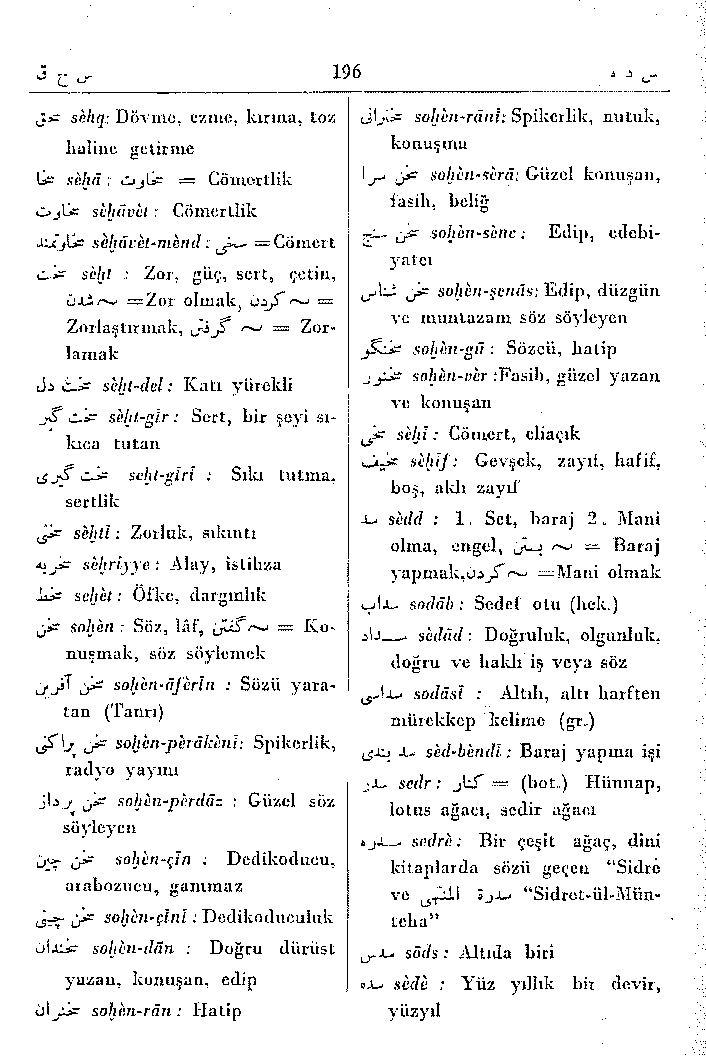 س ح ق 196 س د د
سحق sèhq: Dövme, ezme, kırma, toz
haline getirme
سخا sèḫā : سخاوت = Cömertlik
سخاوت sèḫāvèt : Cömertlik
سخاوتمند sèḫāvèt-mènd : سخی = Cömert
سخت sèḫt : Zor, güç, sert, çetin,
شدن ~ =Zor olmak, کردن ~ =
Zorlaştırmak, گرفتن ~ = Zor-
lamak
سخت دل sèḫt-del : Katı yürekli
سخت گیر sèḫt-gîr : Sert, bir şeyi sı-
kıca tutan
سخت گیری seḫt-gîrî : Sıkı tutma,
sertlik
سختی sèḫtî : Zorluk, sıkıntı
سخریه sèḫriyye : Alay, istihza
سخط seḫèt : Öfke, dargınlık
سخن soḫèn : Söz, lâf, گفتن ~ = Ko-
nuşmak, söz söylemek
سخن آفرین soḫèn-āferîn : Sözü yara-
tan (Tanrı)
سخن پراکنی soḫèn-pèrākènî: Spikerlik,
radyo yayını
سخن پرداز soḫèn-pèrdāz : Güzel söz
söyleyen
سخن چین soḫèn-çîn : Dedikoducu,
arabozucu, gammaz
سخن چینی soḫèn-çînî : Dedikoduculuk
سخندان soḫèn-dān : Doğru dürüst
yazan, konuşan, edip
سخنران soḫèn-rān : Hatip
سخنرانی soḫèn-rānî: Spikerlik, nutuk,
konuşma
سخن سرا soḫèn-sèrā: Güzel konuşan,
fasih, beliğ
سخن سنج soḫèn-sènc : Edip, edebi-
yatcı
سخن شناس soḫèn-şenās: Edip, düzgün
ve muntazam söz söyleyen
سخنگو soḫèn-gū : Sözcü, hatip
سخنور soḫèn-vèr :Fasih, güzel yazan
ve konuşan
سخی sèḫî : Cömert, eliaçık
سخیف sèḫîf : Gevşek, zayıf, hafif,
boş, aklı zayıf
سد sèdd : 1. Set, baraj 2. Mani
olma, engel, بستن ~ = Baraj
yapmak, کردن ~ =Mani olmak
سداب sodāb : Sedef otu (hek.)
سداد sèdād : Doğruluk, olgunluk,
doğru ve haklı iş veya söz
سداسی sodāsî : Altılı, altı harften
mürekkep kelime (gr.)
سد بندی sèd-bèndî : Baraj yapma işi
سدر sedr : کنار = (bot.) Hünnap,
lotus ağacı, sedir ağacı
سدره sedrè : Bir çeşit ağaç, dini
kitaplarda sözü geçen “Sidre
ve سدرة المنتهی “Sidret-ül-Mün-
teha”
سدس sods : Altıda biri
سده sèdè : Yüz yıllık bir devir,
yüzyıl